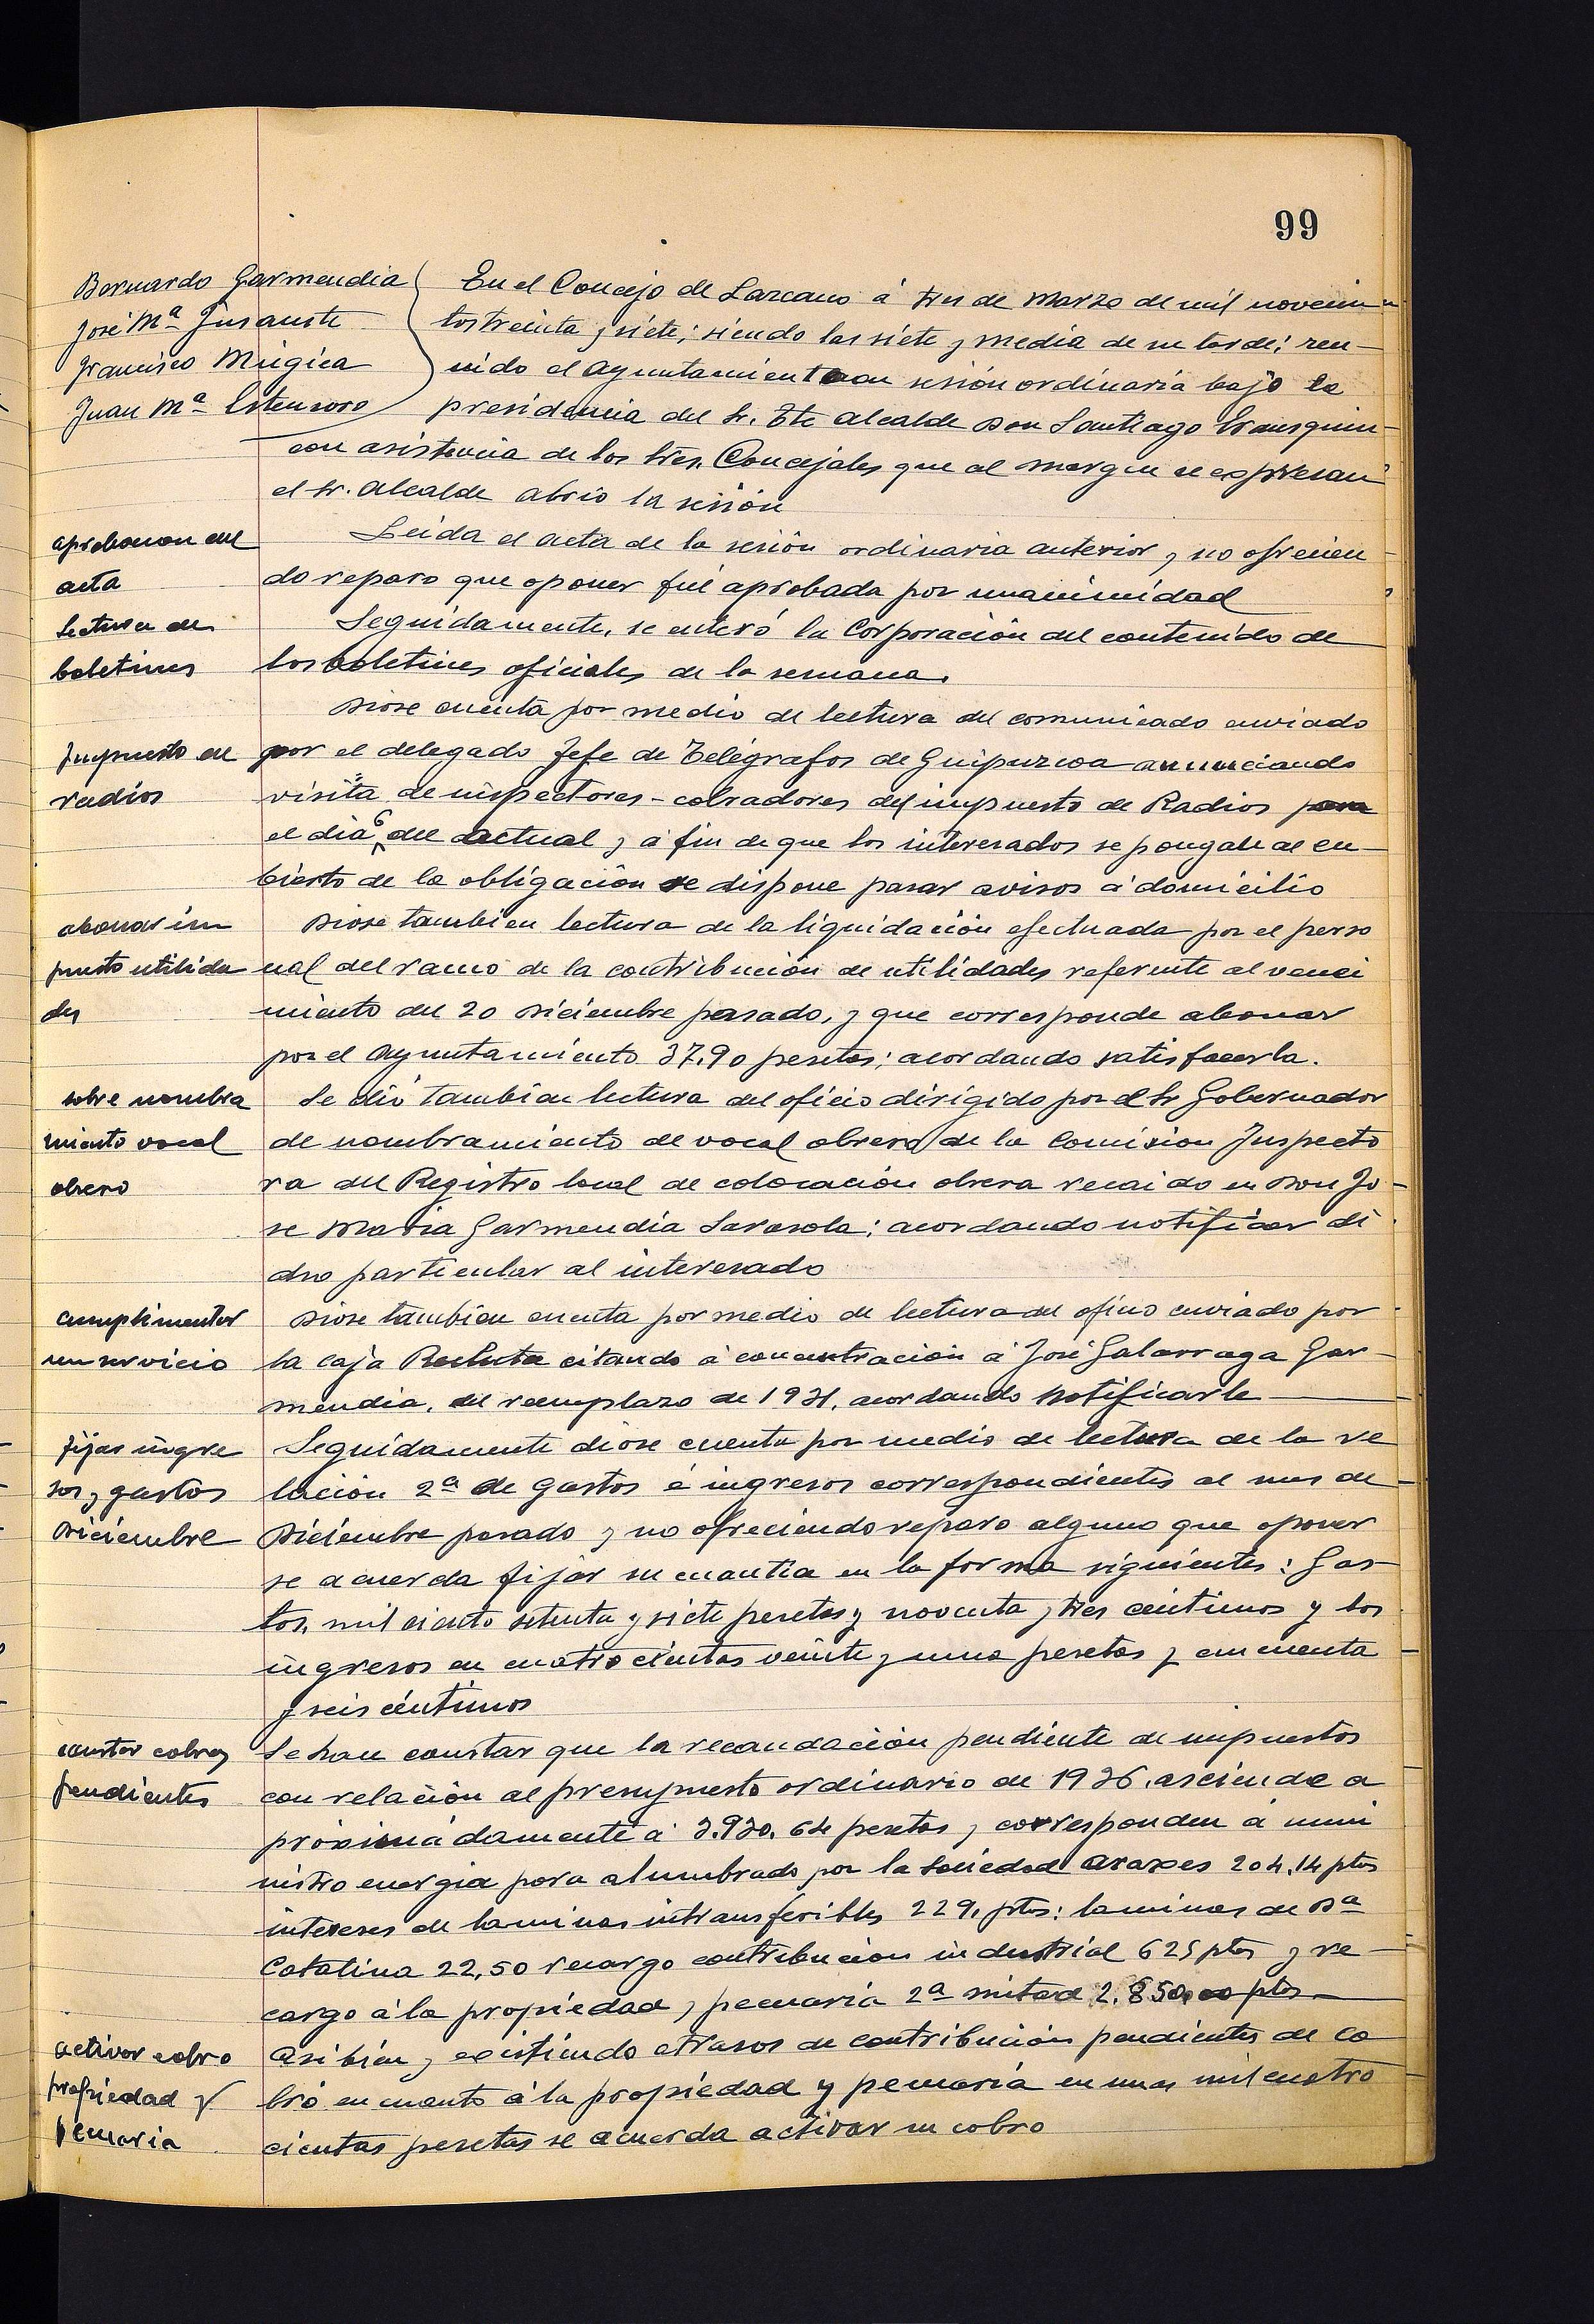 99
Bernardo Garmendia
José Mª Insausti
Francisco Múgica
Juan Mª Estensoro
En el Concejo de Lazcano á tres de Marzo de mil novecien
tos treinta y siete; siendo las siete y media de su tarde; reu-
nido el Ayuntamiento en sesión ordinaria bajo la
presidencia del Sr. Tte Alcalde Don Santiago Erausquin
con asistencia de los tres Concejales que al margen se expresan
el Sr. Alcalde abrió la sesión
aprobacion del
acta
Leida el acta de la sesión ordinaria anterior y no ofrecien
do reparo que oponer fué aprobada por unanimidad
Lectura de
boletines
Seguidamente, se enteró la Corporación del contenido de
los boletines oficiales de la semana.
Impuesto de
radios
Diose cuenta por medio de lectura del comunicado enviado
por el delegado Jefe de Telégrafos de Guipuzcoa anunciando
visita de inspectores-cobradores del impuesto de Radios para
el dia 6 del actual y á fin de que los interesados se pongan al cu-
bierto de la obligación se dispone pasar avisos á domicilio
abonar im
puesto utilida
des
Diose tambien lectura de la liquidación efectuada por el perso
nal del ramo de la contribución de utilidades referente al venci
miento del 20 Diciembre pasado, y que corresponde abonar
por el Ayuntamiento 37,90 pesetas; acordando satisfacerla.
sobre nombra
miento vocal
obrero
Se dió tambien lectura del oficio dirigido por el Sr Gobernador
de nombramiento de vocal obrero de la Comision Inspecto
ra del Registro local de colocación obrera recaido en Don Jo-
se Maria Garmendia Sarasola; acordando notificar di
cho particular al interesado
cumplimentar
un servicio
Diose tambien cuenta por medio de lectura del oficio enviado por
la Caja Recluta citando á concentración á José Galarraga Gar-
mendia, del reemplazo de 1931, acordando notificarle
fijar ingre
sos y gastos
Diciembre
Seguidamente diose cuenta por medio de lectura de la re
lación 2ª de gastos é ingresos correspondientes al mes de
Diciembre pasado y no ofreciendo reparo alguno que oponer
se acuerda fijar su cuantia en la forma siguientes: Gas-
tos, mil ciento setenta y siete pesetas y noventa y tres centimos y los
ingresos en cuatrocientas veinte y una pesetas y cincuenta
y seis céntimos
constar cobros
pendientes
Se hace constar que la recaudación pendiente de impuestos
con relación al presupuesto ordinario de 1936, asciende a
próximadamente á 3.930,64 pesetas y corresponden á sumi
nistro energia para alumbrado por la Sociedad Araxes 204,14 ptas
intereses de laminas intransferibles 229, ptas: laminas de Dª
Catalina 22,50 recargo contribución industrial 625 ptas y re-
cargo á la propiedad y pecuaria 2ª mitad 2.850,00 ptas
activar cobro
propiedad y
pecuaria
Asi bien y existiendo atrasos de contribución pendientes de co
bro en cuanto á la propiedad y pecuaria en unas mil cuatro
cientas pesetas se acuerda activar su cobro